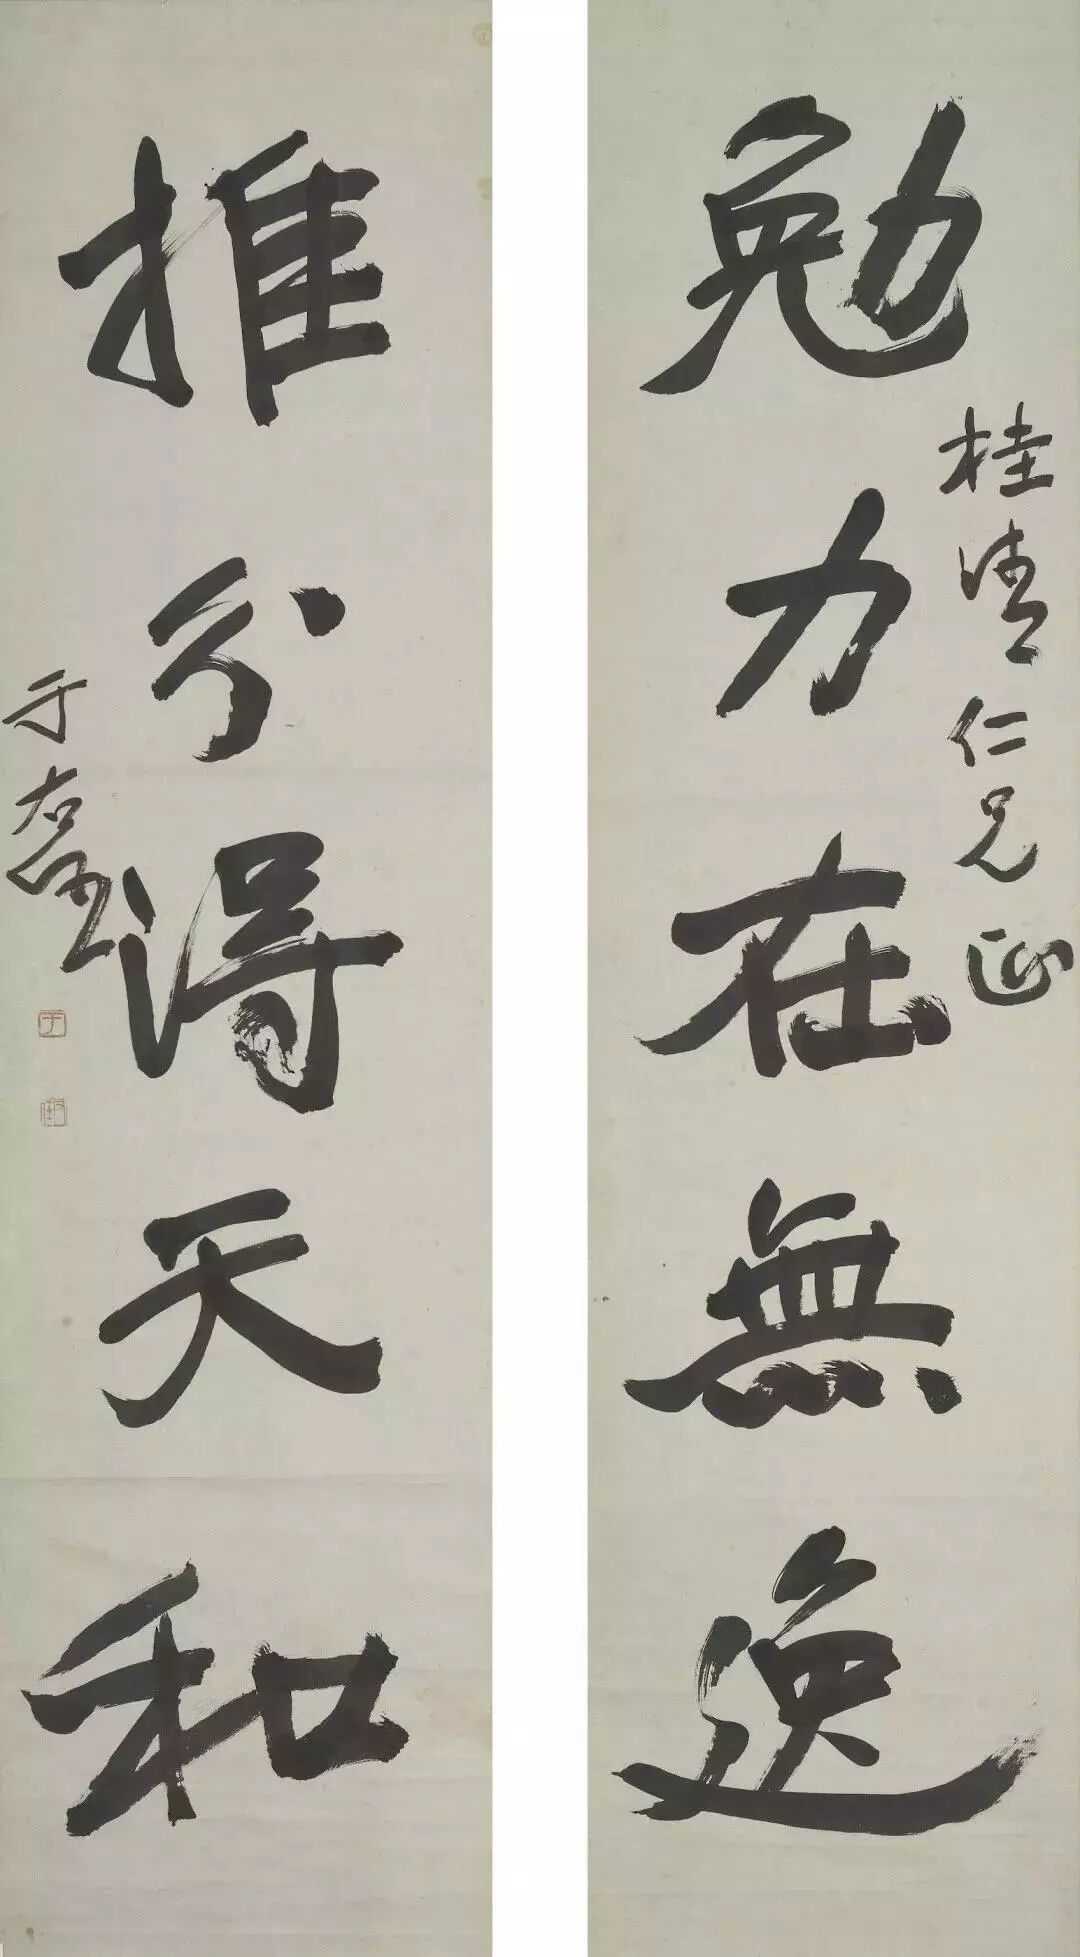 桂仁兄正
勉力在無逸
推分得天和
于右任
于